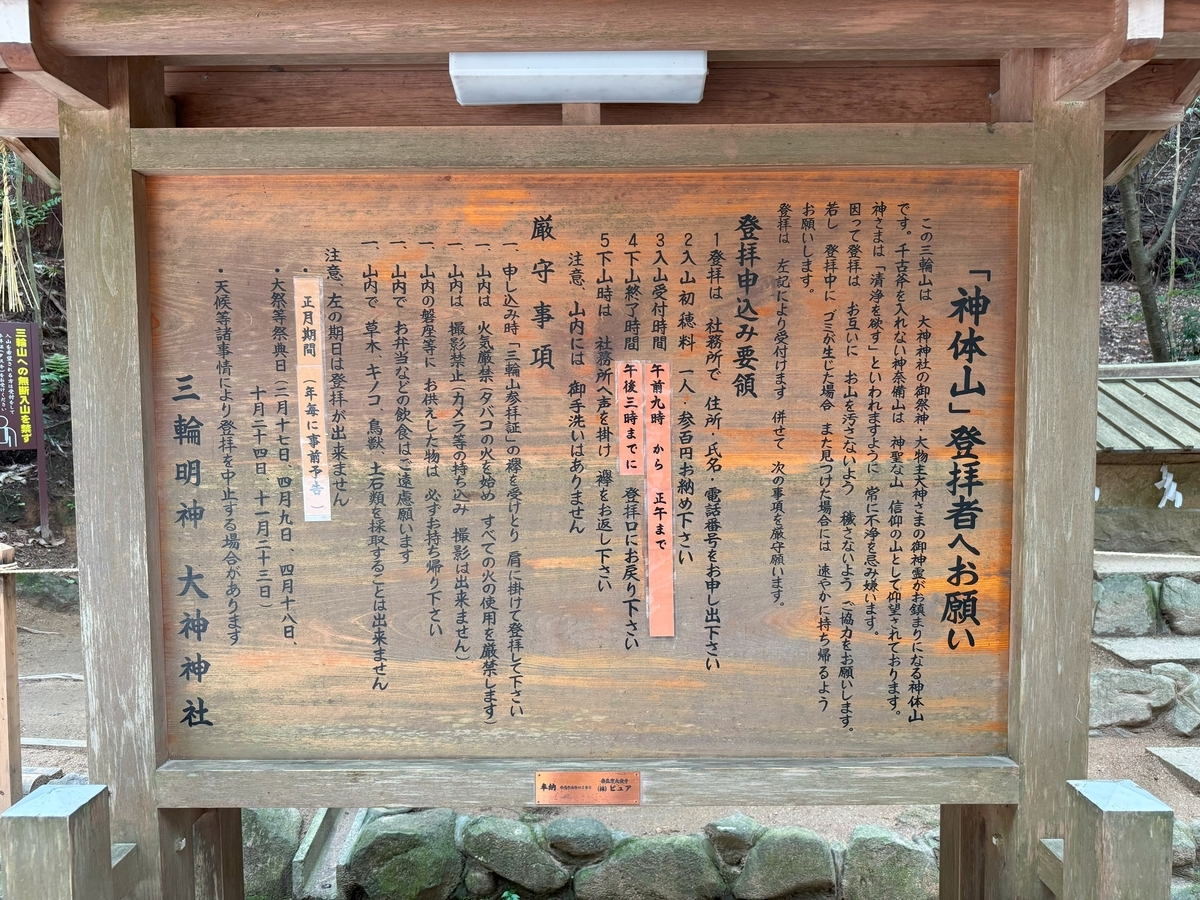 「神体山」登拝者へお願い
この三輪山は 大神神社の御祭神・大物主大神さまの御神霊がお鎮まりになる神体山
です。千古斧を入れない神奈備山は 神聖な山 信仰の山として仰望されております。
神さまは「清浄を欲す」といわれますように 常に不浄を忌み嫌います。
因って登拝は お互いに お山を汚さないよう 穢さないよう ご協力をお願いします。
若し 登拝中に ゴミが生じた場合 また見つけた場合には 速やかに持ち帰るよう
お願いします。
登拝は 左記により受付けます 併せて 次の事項を厳守願います。
登拝申込み要領
1登拝は 社務所で 住所・氏名・電話番号をお申し出下さい
2入山初穂料 一人・参百円お納め下さい
3入山受付時間 午前九時 から 正午まで
4下山終了時間 午後三時までに 登拝口にお戻り下さい
5下山時は 社務所へ声を掛け 襷をお返し下さい
注意、山内には 御手洗いはありません
厳守事項
一、申し込み時「三輪山参拝証」の襷を受けとり 肩に掛けて登拝して下さい
一、山内は 火気厳禁(タバコの火を始め すべての火の使用を厳禁します)
一、山内は 撮影禁止(カメラ等の持ち込み 撮影は出来ません)
一、山内の磐座等に お供えした物は 必ずお持ち帰り下さい
一、山内で お弁当などの飲食はご遠慮願います
一、山内で 草木、キノコ、鳥獣、土石類を採取することは出来ません
注意、左の期日は登拝が出来ません
・正月期間 (年毎に事前予告)
・大祭等祭典日(二月十七日、四月九日、四月十八日、
十月二十四日、十一月二十三日)
・天候等諸事情により登拝を中止する場合があります
三輪明神 大神神社
三輪山への無断入山を禁ず
奉納
(株)ピュア